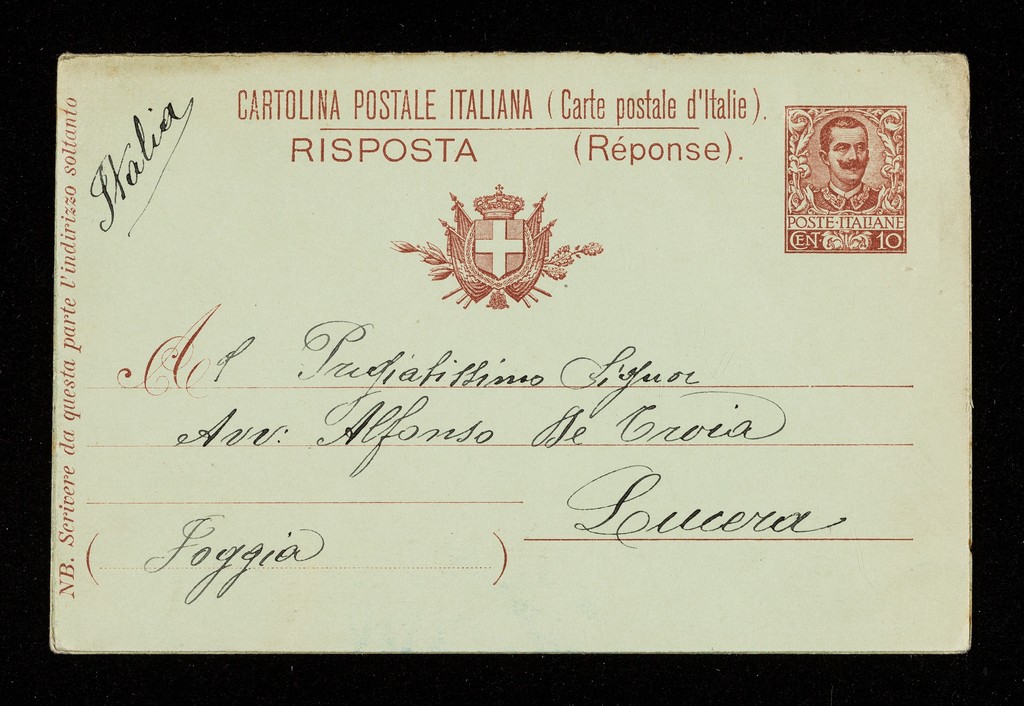 CARTOLINA POSTALE ITALIANA (Carte postale d'Italie).
RISPOSTA (Réponse).
POSTE·ITALIANE
CENT 10
Italia
NB. Scrivere da questa parte l'indirizzo soltanto
Al Pregiatissimo Signor
Avv: Alfonso De Troia
Lucera
(Foggia)